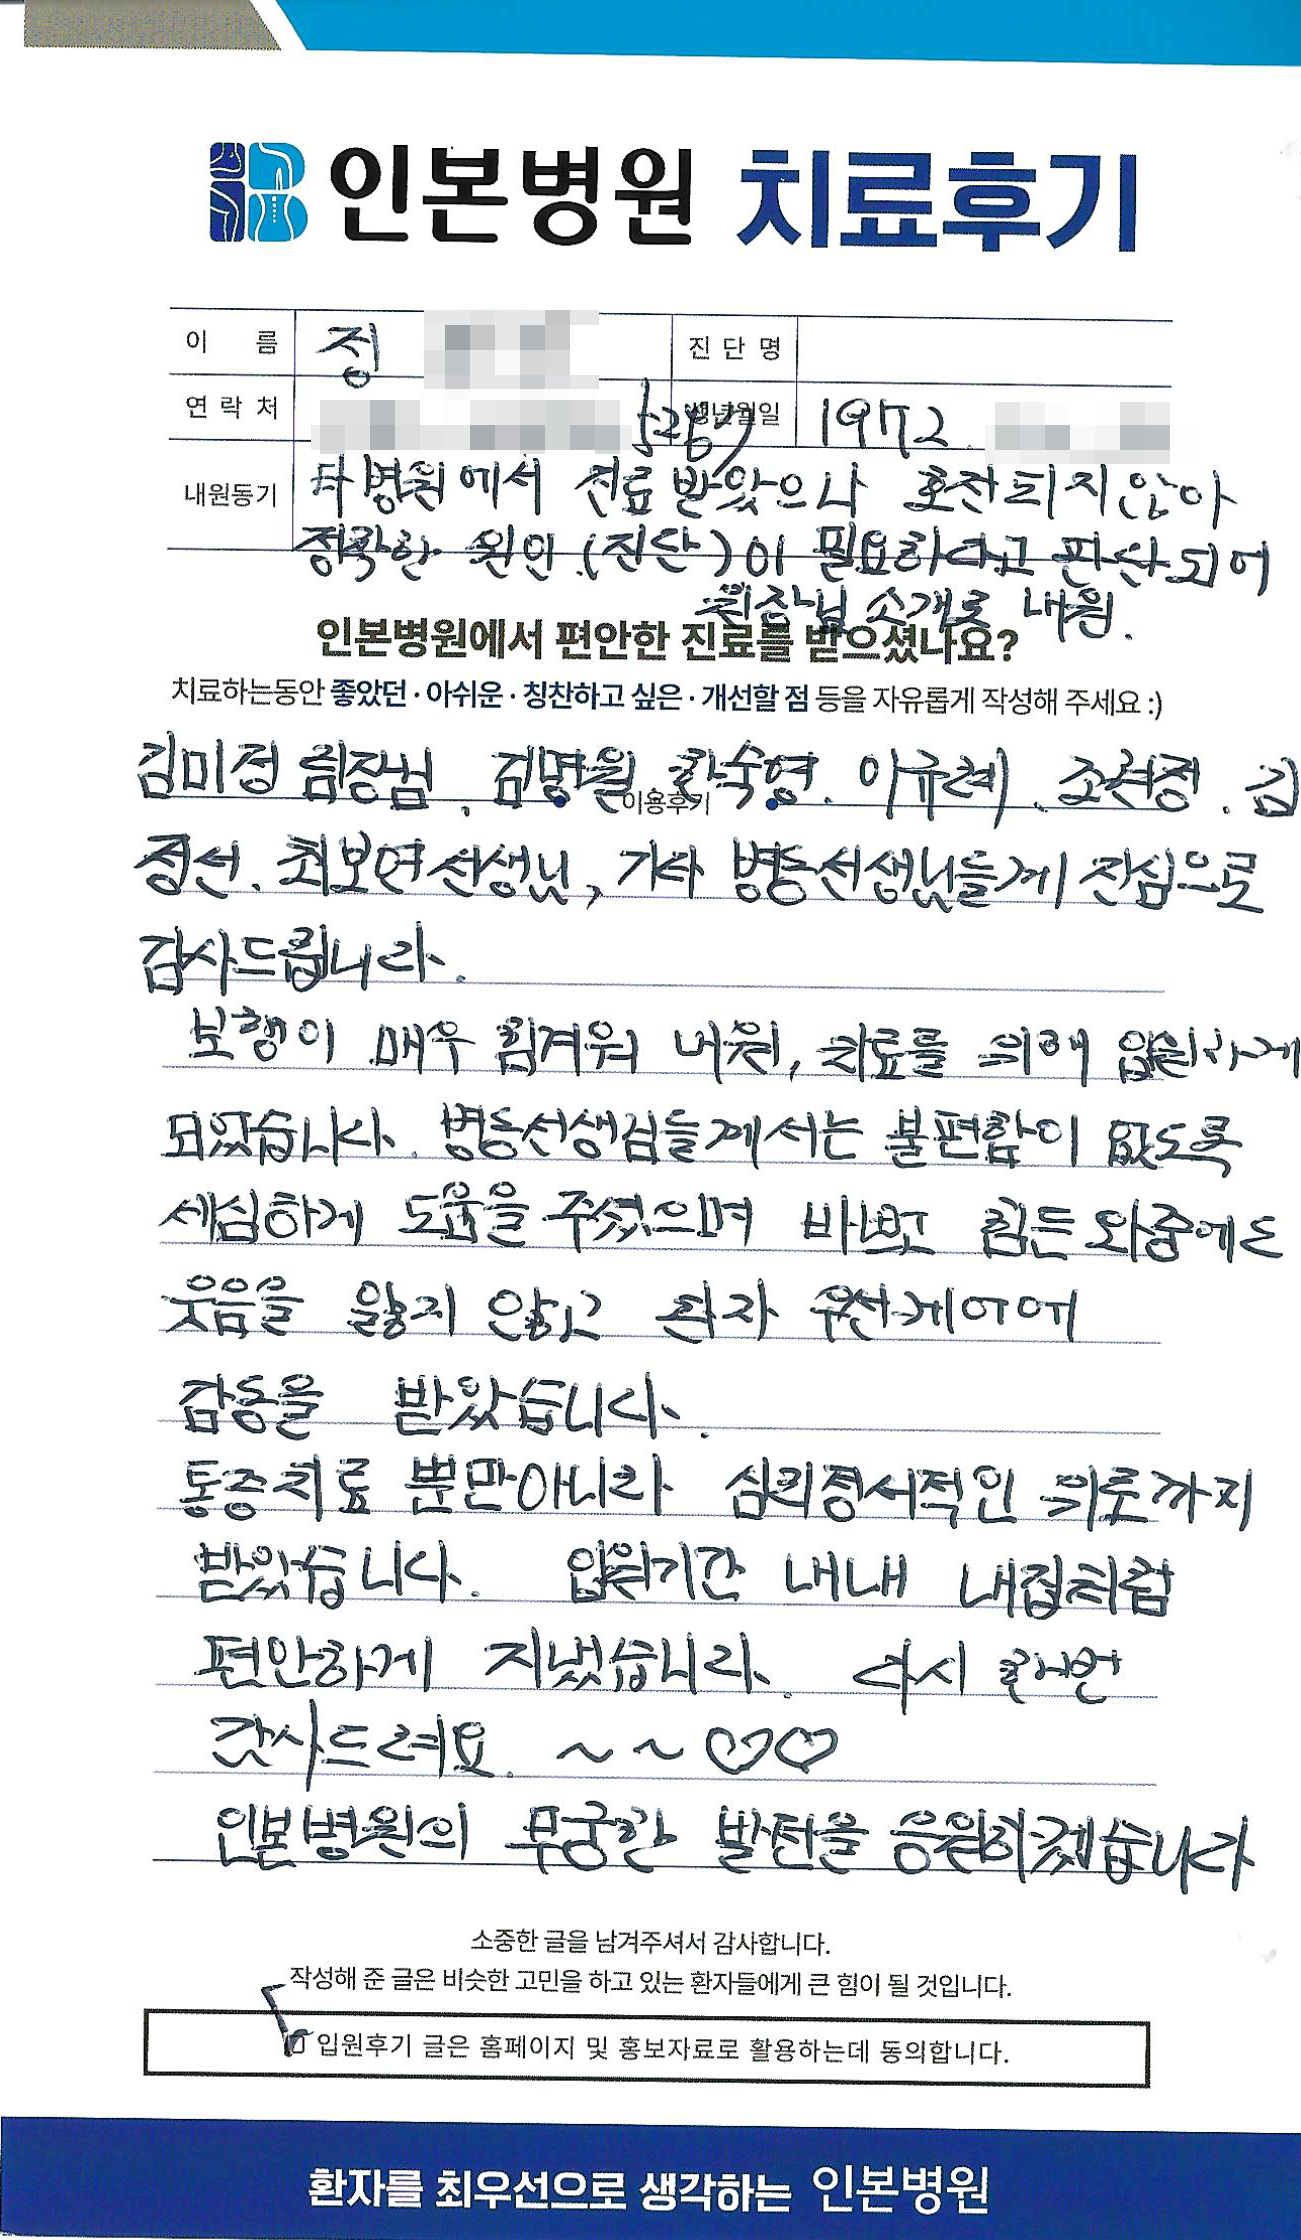 인본병원 치료후기
이 름 정 진 단 명
연 락 처 생년월일 1972.
내원동기 타병원에서 진료받았으나 호전되지않아
정확한 원인 (진단)이 필요하다고 판단되어
원장님 소개로 내원.
인본병원에서 편안한 진료를 받으셨나요?
치료하는동안 좋았던 · 아쉬운 · 칭찬하고 싶은 · 개선할 점 등을 자유롭게 작성해 주세요 :)
이용후기
김미정 팀장님, 김명원, 한숙영. 이규례, 조현정. 김
정선. 최보연선생님, 기타 병동선생님들께 진심으로
감사드립니다.
보행이 매우 힘겨워 내원, 치료를 위해 입원하게
되었습니다. 병동선생님들께서는 불편함이 없도록
세심하게 도움을 주셨으며 바쁘고 힘든 와중에도
웃음을 잃지 않고 환자 우선케어에
감동을 받았습니다.
통증치료 뿐만아니라 심리정서적인 위로까지
받았습니다. 입원기간 내내 내집처럼
편안하게 지냈습니다. 다시 한번
감사드려요. ~ ~ ♡♡
인본병원의 무궁한 발전을 응원하겠습니다
소중한 글을 남겨주셔서 감사합니다.
작성해 준 글은 비슷한 고민을 하고 있는 환자들에게 큰 힘이 될 것입니다.
입원후기 글은 홈페이지 및 홍보자료로 활용하는데 동의합니다.
환자를 최우선으로 생각하는 인본병원